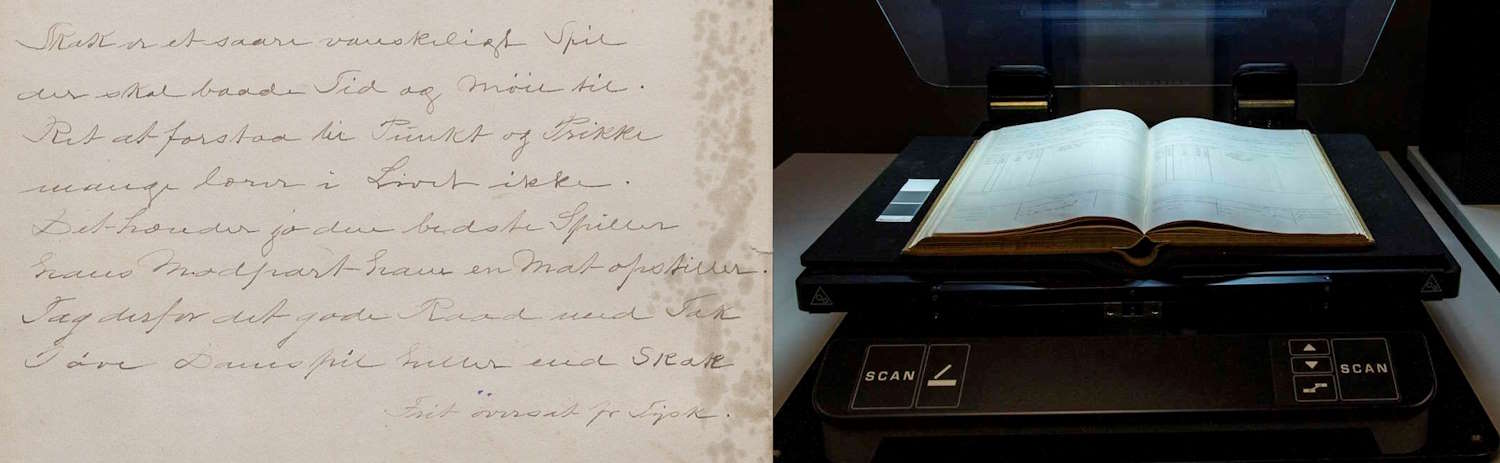 Skak er et saare vanskeligt Spil
der skal baade Tid og Møie til.
Ret at forstaa Punkt og Prikke
mange lærer i Livet ikke.
Det hænder jo den bedste Spiller
hans Modpart ham en Mat opstiller.
Tag derfor det gode Raad med Tak
I øve Damspil heller end Skak
Frit översat fr Tysk.
SCAN
SCAN